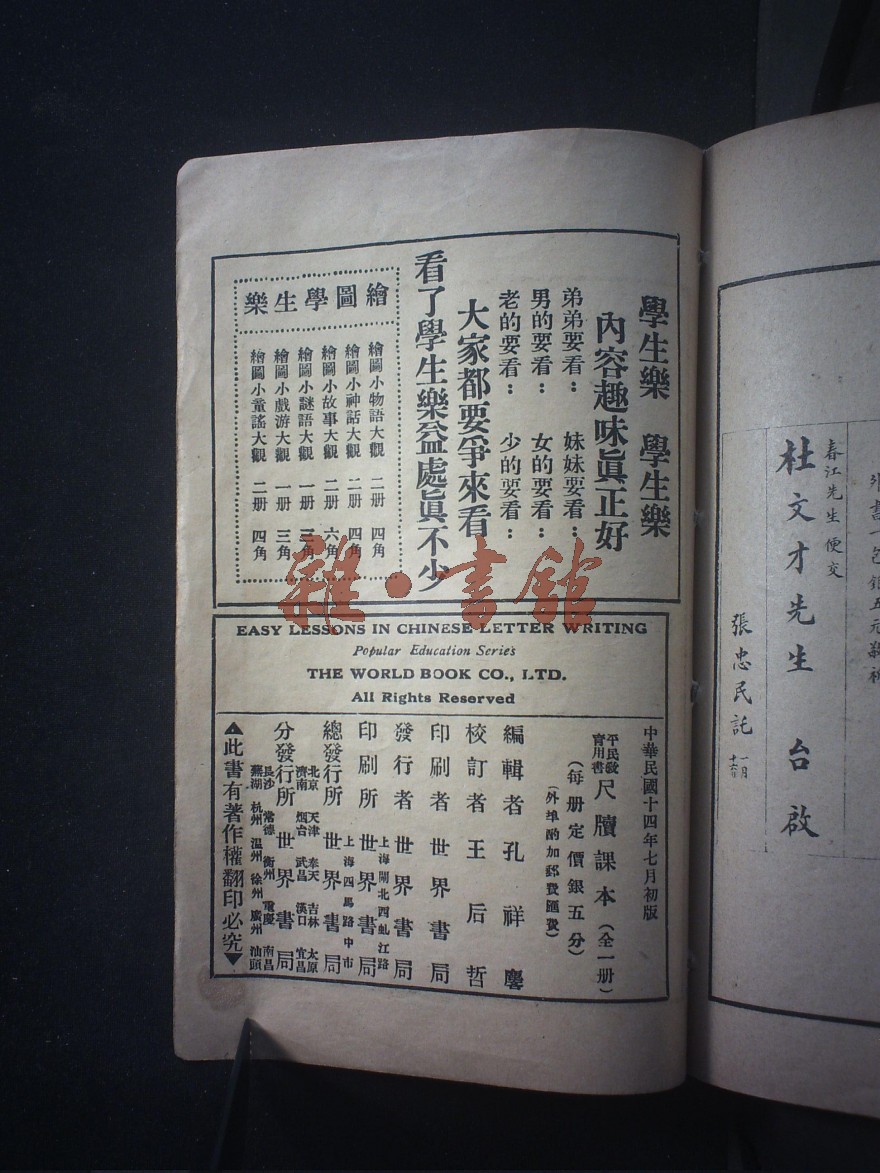 學生樂　學生樂
內容趣味眞正好
弟弟要看：　妹妹要看：
男的要看：　女的要看：
老的要看：　少的要看：
大家都要爭來看
看了學生樂益處眞不少
繪圖學生樂
繪圖小物語大觀　二册　四角
繪圖小神話大觀　二册　四角
繪圖小故事大觀　二册　六角
繪圖小謎語大觀　一册　三角
繪圖小戲游大觀　一册　三角
繪圖小童謠大觀　二册　四角
雜·書館
EASY LESSONS IN CHINESE LETTER WRITING
Popular Education Series
THE WORLD BOOK CO., LTD.
All Rights Reserved
中華民國十四年七月初版
平民教育實用書 尺牘課本（全一册）
（每册定價銀五分）
（外埠酌加郵費匯費）
編輯者 孔祥麐
校訂者 王后哲
印刷者 世界書局
發行者 世界書局
上海閘北西虬江路
印刷所 世界書局
上海四馬路中市
總發行所 世界書局
北京 天津 奉天 吉林 太原
濟南 烟台 武昌 漢口 宜昌
分發行所 世界書局
長沙 常德 衡州 重慶 南昌
蕪湖 杭州 温州 徐州 廣州 汕頭
▲此書有著作權翻印必究▼
外書一包銀五元
春江先生 便交
杜文才先生　台啟
張忠民託